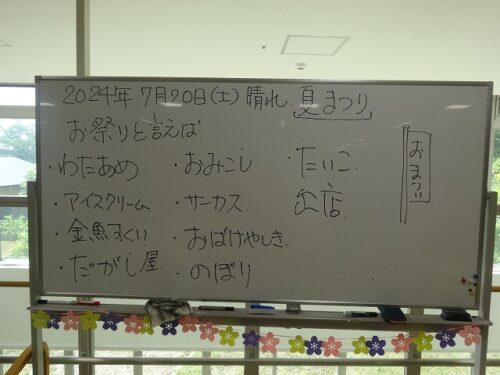 2024年 7月20日(土) 晴れ. 夏まつり
お祭りと言えば
・わたあめ
・アイスクリーム
・金魚すくい
・だがし屋
・おみこし
・サーカス
・おばけやしき
・のぼり
・たいこ
出店
おまつり